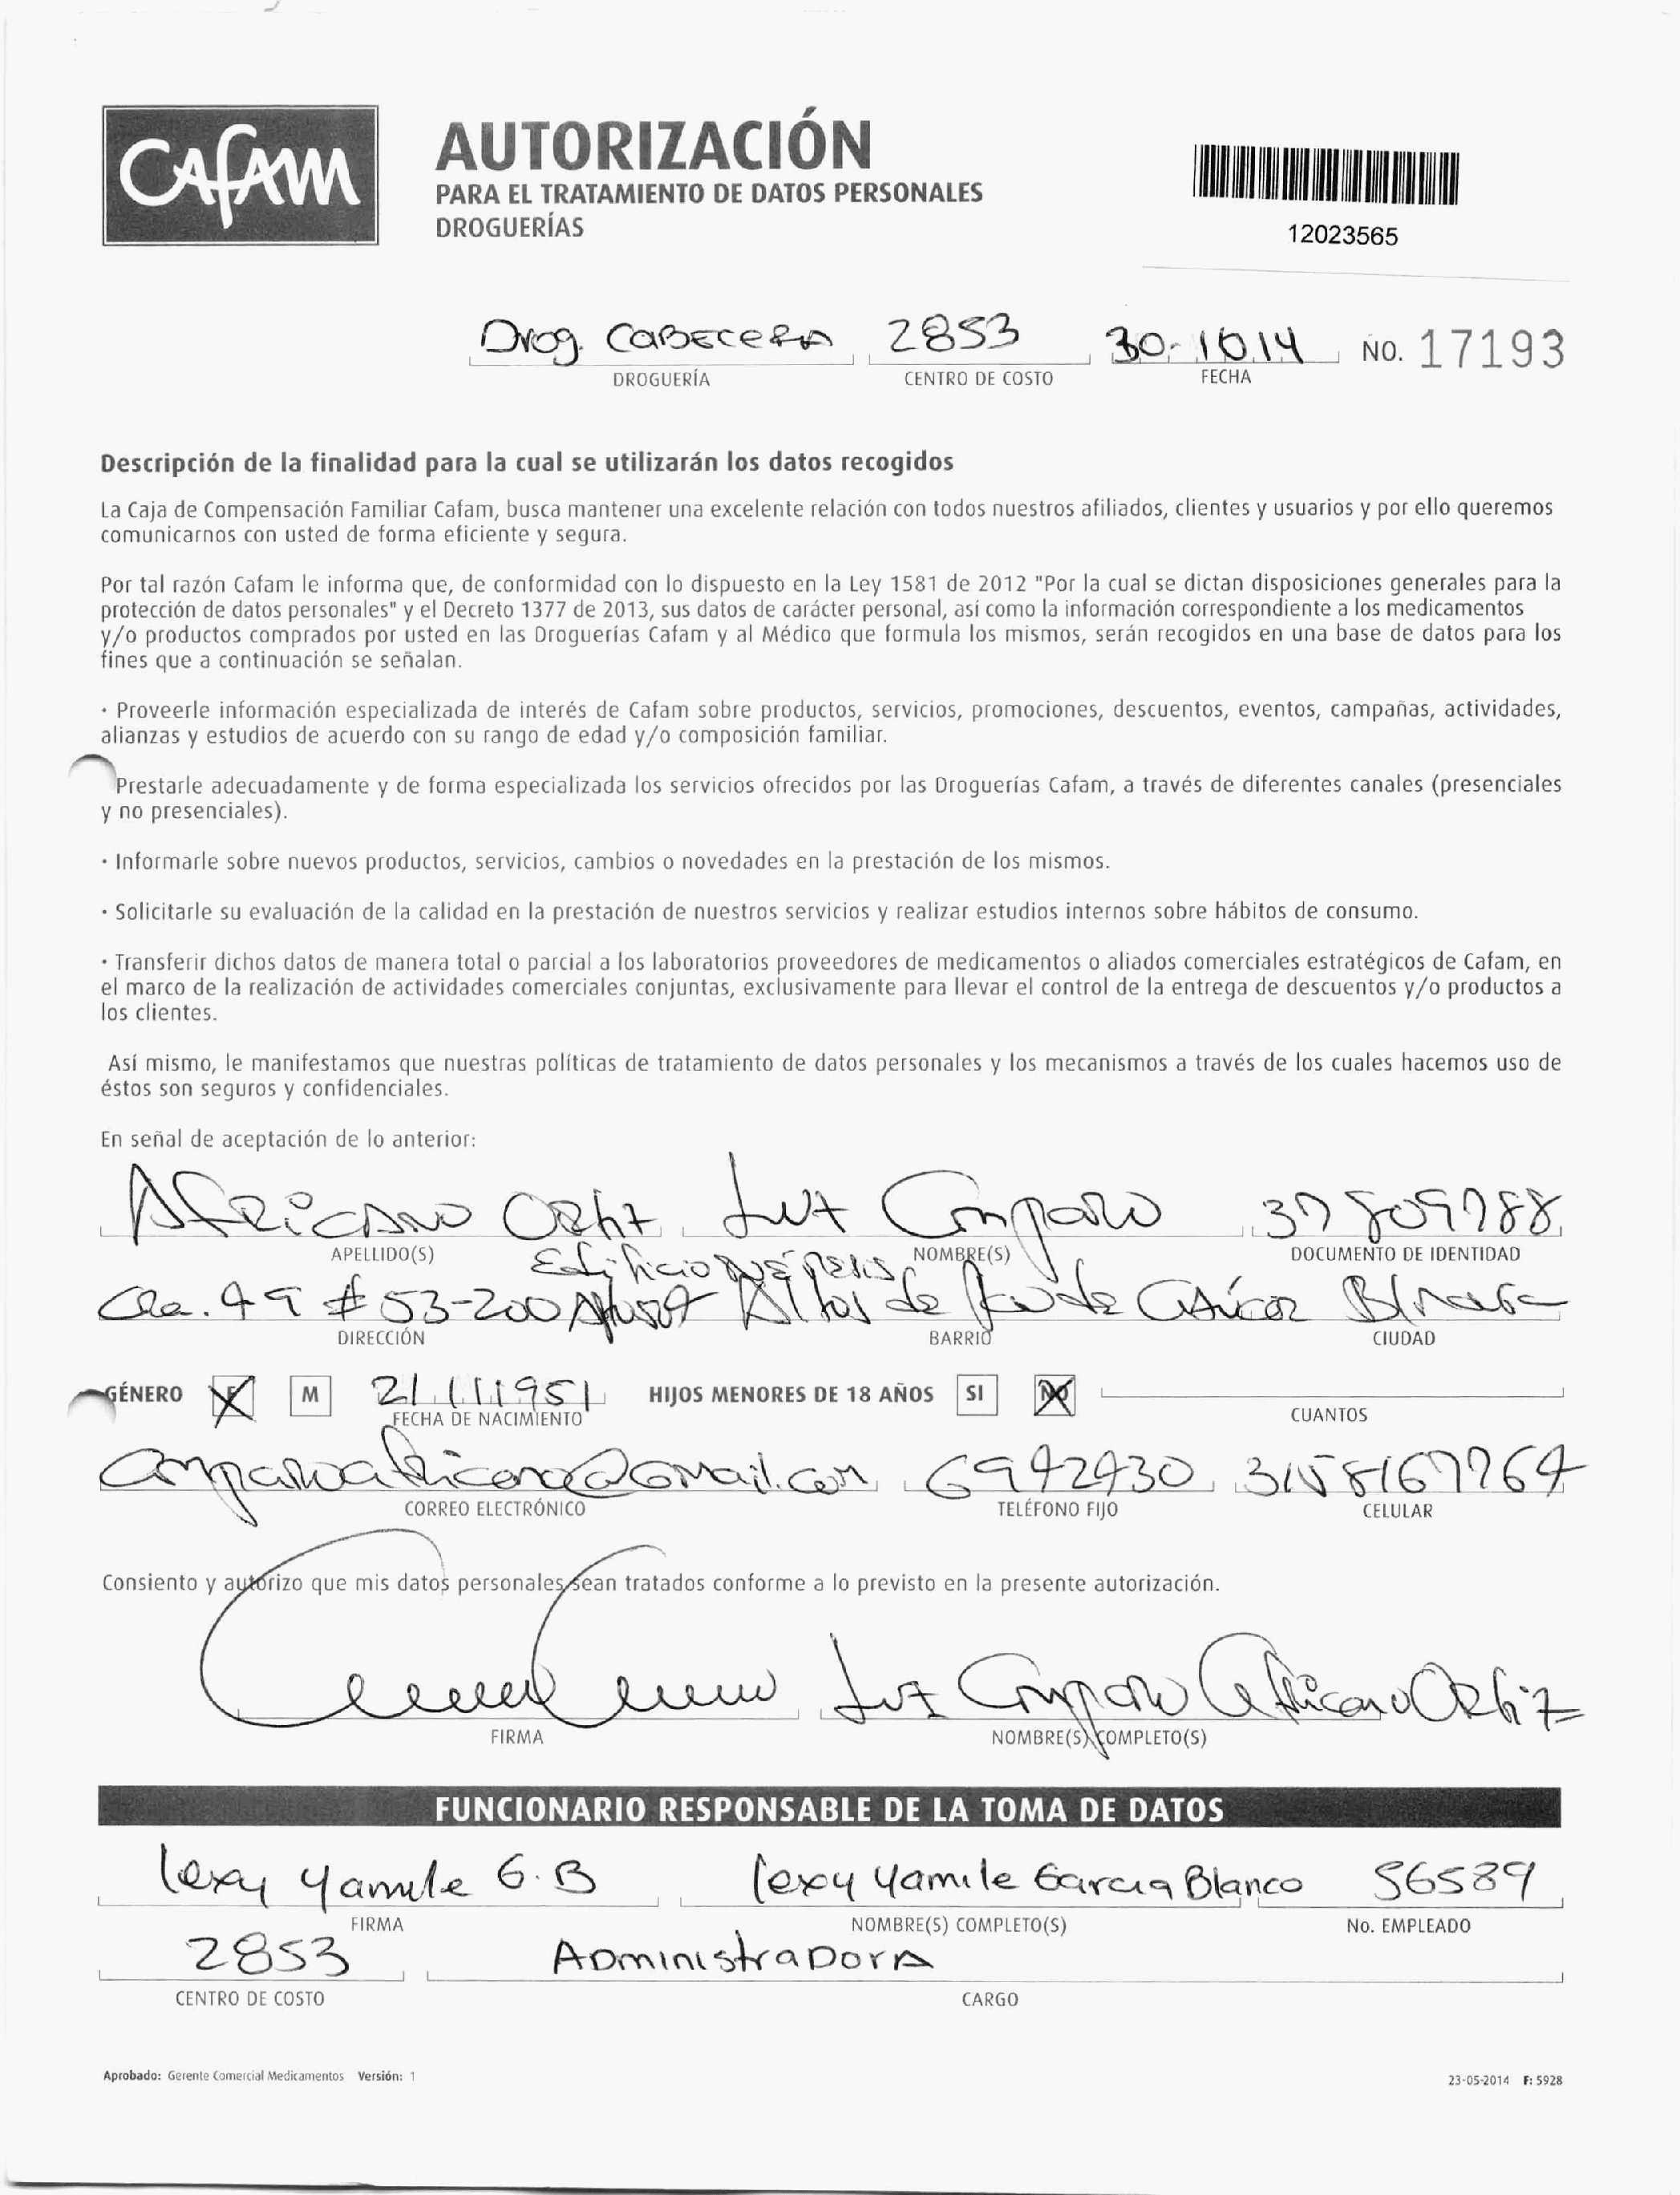 CAFAM
AUTORIZACIÓN
PARA EL TRATAMIENTO DE DATOS PERSONALES
DROGUERÍAS
12023565
Drog. CABECERA 2853 30-10 14 NO. 17193
DROGUERÍA CENTRO DE COSTO FECHA
Descripción de la finalidad para la cual se utilizarán los datos recogidos
La Caja de Compensación Familiar Cafam, busca mantener una excelente relación con todos nuestros afiliados, clientes y usuarios y por ello queremos
comunicarnos con usted de forma eficiente y segura.
Por tal razón Cafam le informa que, de conformidad con lo dispuesto en la Ley 1581 de 2012 "Por la cual se dictan disposiciones generales para la
protección de datos personales" y el Decreto 1377 de 2013, sus datos de carácter personal, así como la información correspondiente a los medicamentos
y/o productos comprados por usted en las Droguerías Cafam y al Médico que formula los mismos, serán recogidos en una base de datos para los
fines que a continuación se señalan.
· Proveerle información especializada de interés de Cafam sobre productos, servicios, promociones, descuentos, eventos, campañas, actividades,
alianzas y estudios de acuerdo con su rango de edad y/o composición familiar.
Prestarle adecuadamente y de forma especializada los servicios ofrecidos por las Droguerías Cafam, a través de diferentes canales (presenciales
y no presenciales).
· Informarle sobre nuevos productos, servicios, cambios o novedades en la prestación de los mismos.
· Solicitarle su evaluación de la calidad en la prestación de nuestros servicios y realizar estudios internos sobre hábitos de consumo.
· Transferir dichos datos de manera total o parcial a los laboratorios proveedores de medicamentos o aliados comerciales estratégicos de Cafam, en
el marco de la realización de actividades comerciales conjuntas, exclusivamente para llevar el control de la entrega de descuentos y/o productos a
los clientes.
Así mismo, le manifestamos que nuestras políticas de tratamiento de datos personales y los mecanismos a través de los cuales hacemos uso de
éstos son seguros y confidenciales.
En señal de aceptación de lo anterior:
Africano Ortiz Luz Amparo 37809988
APELLIDO(S) NOMBRE(S) DOCUMENTO DE IDENTIDAD
Edificio
Cra. 49 # 53-200 Altos de
DIRECCIÓN BARRIO CIUDAD
GÉNERO F M 21 11 1951 HIJOS MENORES DE 18 AÑOS SI NO
FECHA DE NACIMIENTO CUANTOS
amparoafricano@Gmail.com 6942430 3158167764
CORREO ELECTRÓNICO TELÉFONO FIJO CELULAR
Consiento y autorizo que mis datos personales sean tratados conforme a lo previsto en la presente autorización.
Luz Amparo Africano Ortiz
FIRMA NOMBRE(S) COMPLETO(S)
FUNCIONARIO RESPONSABLE DE LA TOMA DE DATOS
lexy yamile G.B lexy yamile Garcia Blanco 56589
FIRMA NOMBRE(S) COMPLETO(S) No. EMPLEADO
2853 ADministraDorA
CENTRO DE COSTO CARGO
Aprobado: Gerente Comercial Medicamentos Versión: 1
23-05-2014 F: 5928